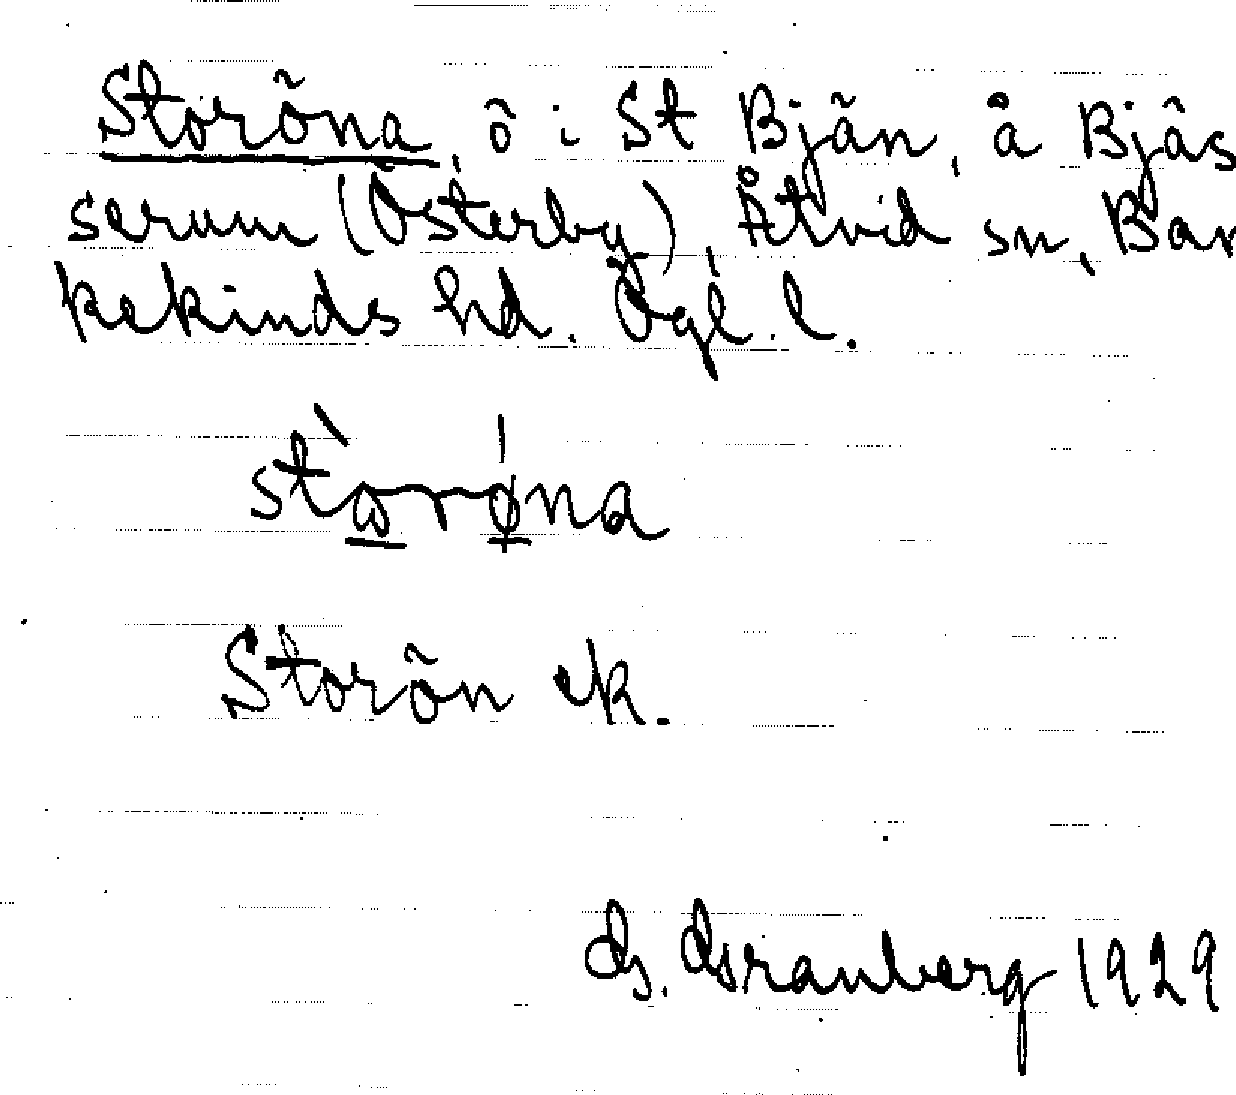 Storöna, ö i St Bjän, å Bjäs
serum (Österby), Åtvid sn, Bar
kekinds hd. Ögl. l.
stòrǿna
Storön ek.
G. Granberg 1929